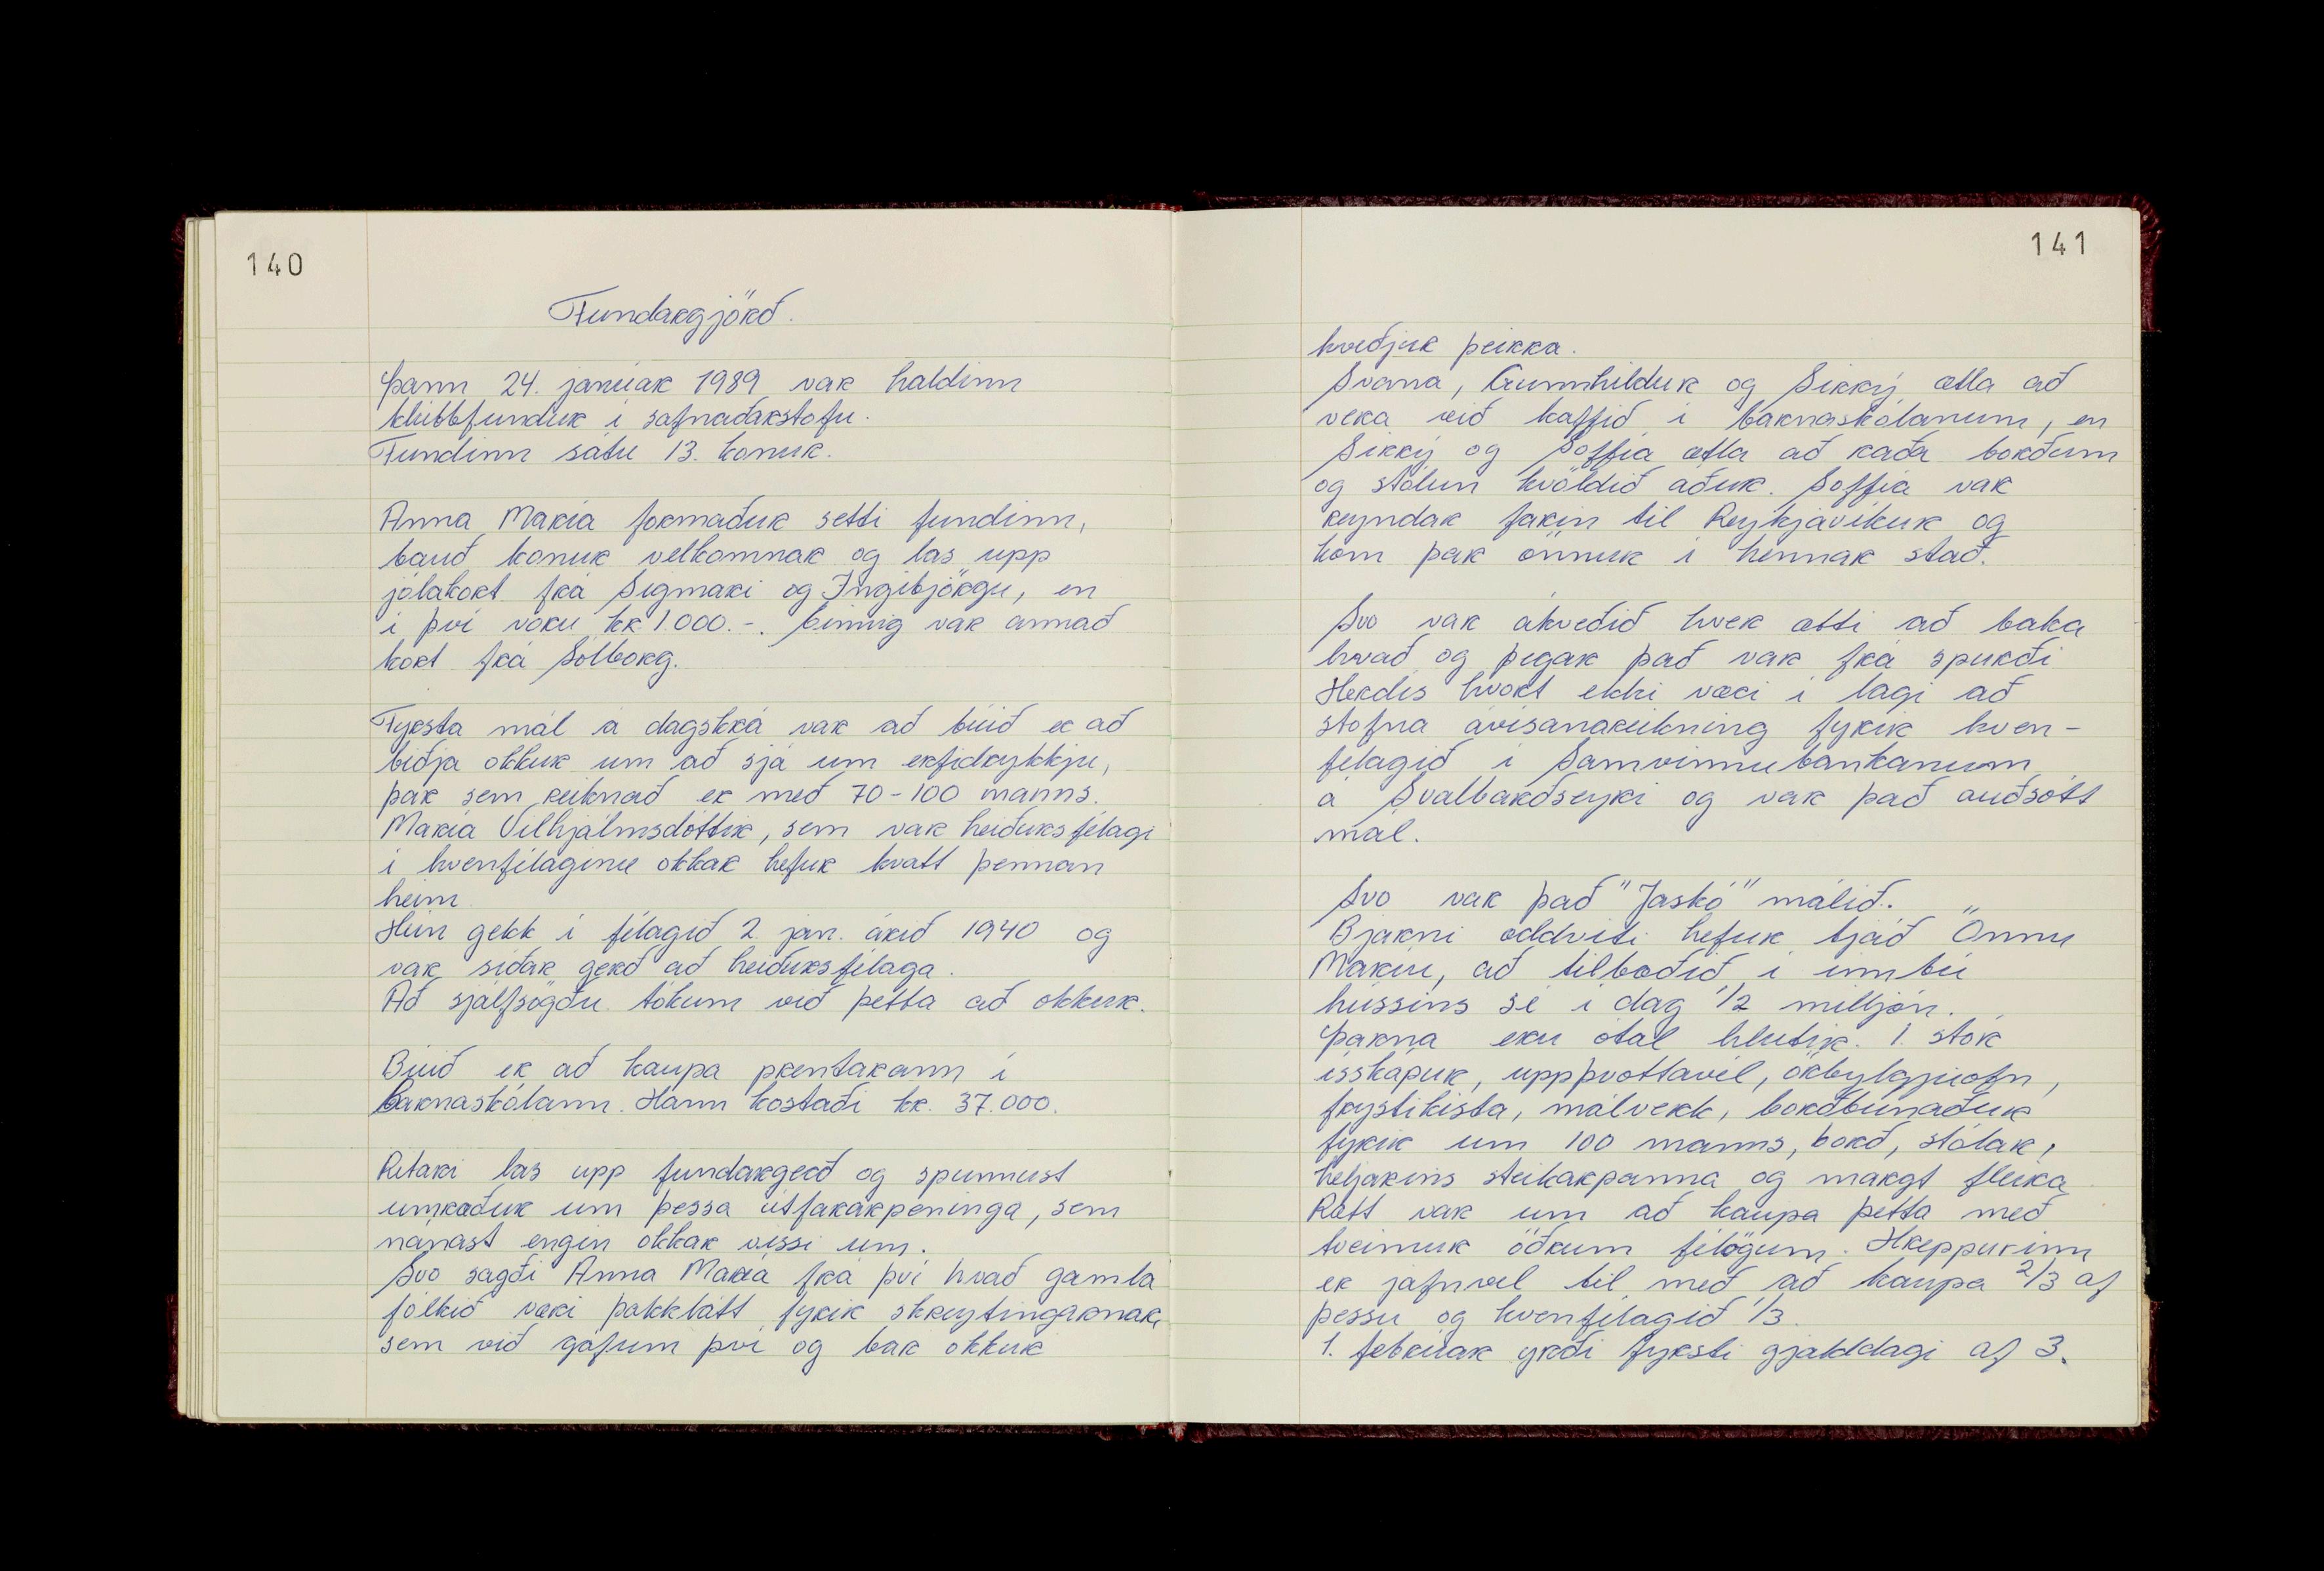 140
Fundargjörð.
Þann 24. janúar 1989 var haldinn
klúbbfundur í safnaðarstofu.
Fundinn sátu 13. konur.
Anna María formaður setti fundinn,
bauð konur velkomnar og las upp
jólakort frá Sigmari og Ingibjörgu, en
í því voru kr. 1.000.-. Einnig var annað
kort frá Sólborg.
Fyrsta mál á dagskrá var að búið er að
biðja okkur um að sjá um erfidrykkju,
þar sem reiknað er með 70-100 manns.
María Vilhjálmsdóttir, sem var heiðursfélagi
í kvenfélaginu okkar hefur kvatt þennan
heim.
Hún gekk í félagið 2. jan. árið 1940 og
var síðar gerð að heiðursfélaga.
Að sjálfsögðu tökum við þetta að okkur.
Búið er að kaupa prentarann í
Barnaskólann. Hann kostaði kr. 37.000.
Ritari las upp fundargerð og spunnust
umræður um þessa útfararpeninga, sem
nánast engin okkar vissi um.
Svo sagði Anna María frá því hvað gamla
fólkið væri þakklátt fyrir skreytingarnar,
sem við gáfum því og bar okkur
141
kveðjur þeirra.
Svana, Gunnhildur og Sirrý ætla að
vera við kaffið í barnaskólanum, en
Sirrý og Soffía ætla að raða borðum
og stólun kvöldið áður. Soffía var
reyndar farin til Reykjavíkur og
kom þar önnur í hennar stað.
Svo var ákveðið hver ætti að baka
hvað og þegar það var frá spurði
Herdís hvort ekki væri í lagi að
stofna ávísanareikning fyrir kven-
félagið í Samvinnubankanum
á Svalbarðseyri og var það auðsótt
mál.
Svo var það "Jaskó" málið.
Bjarni oddviti hefur tjáð Önnu
Maríu, að tilboðið í innbú
hússins sé í dag 1/2 milljón.
Þarna eru ótal hlutir. 1. stór
ísskápur, uppþvottavél, örbylgjuofn,
frystikista, málverk, borðbúnaður
fyrir um 100 manns, borð, stólar,
heljarins steikarpanna og margt fleira.
Rætt var um að kaupa þetta með
tveimur öðrum félögum. Hreppurinn
er jafnvel til með að kaupa 2/3 af
þessu og kvenfélagið 1/3.
1. febrúar yrði fyrsti gjalddagi af 3.